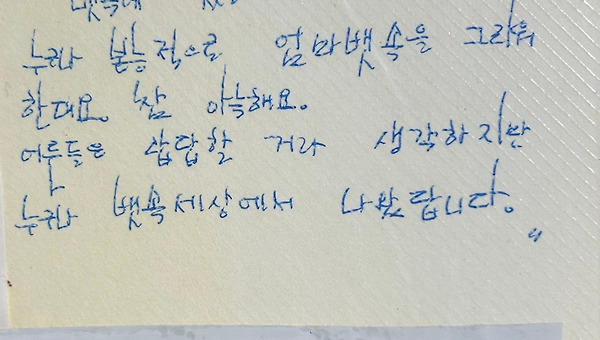 누구나 본능적으로 엄마뱃속을 그리워
한대요. 참 아늑해요.
어른들은 답답할 거라 생각하지만
누구나 뱃속세상에서 나왔답니다.
"